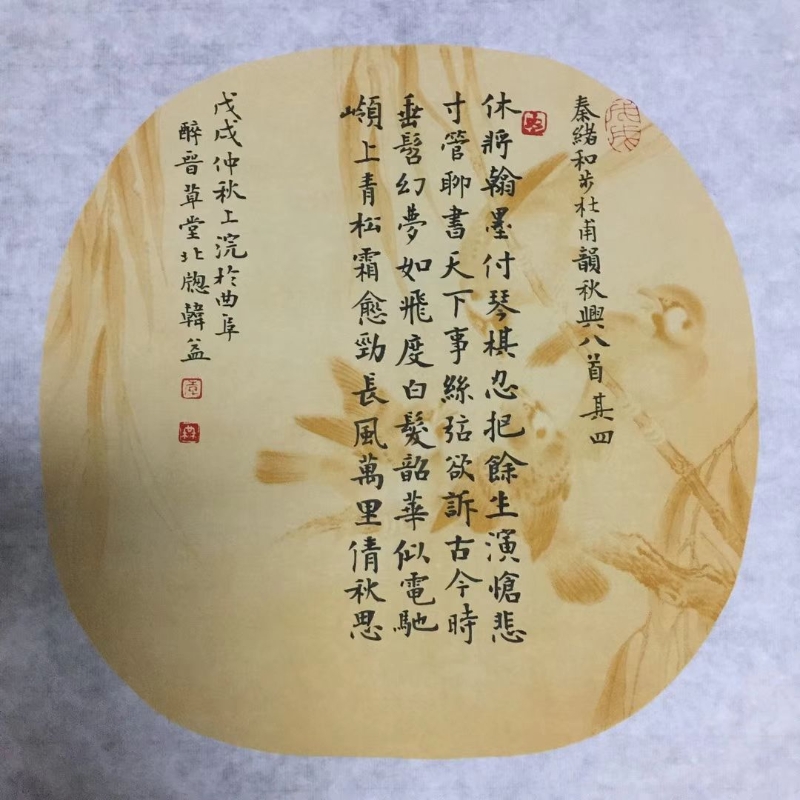 秦緒和步杜甫韻秋興八首其四
休將翰墨付琴棋忍把餘生演愴悲
寸管聊書天下事絲弦欲訴古今時
垂髫幻夢如飛度白髮韶華似電馳
嶺上青松霜愈勁長風萬里倩秋思
戊戌仲秋上浣於曲阜
醉晉草堂北牕韓益